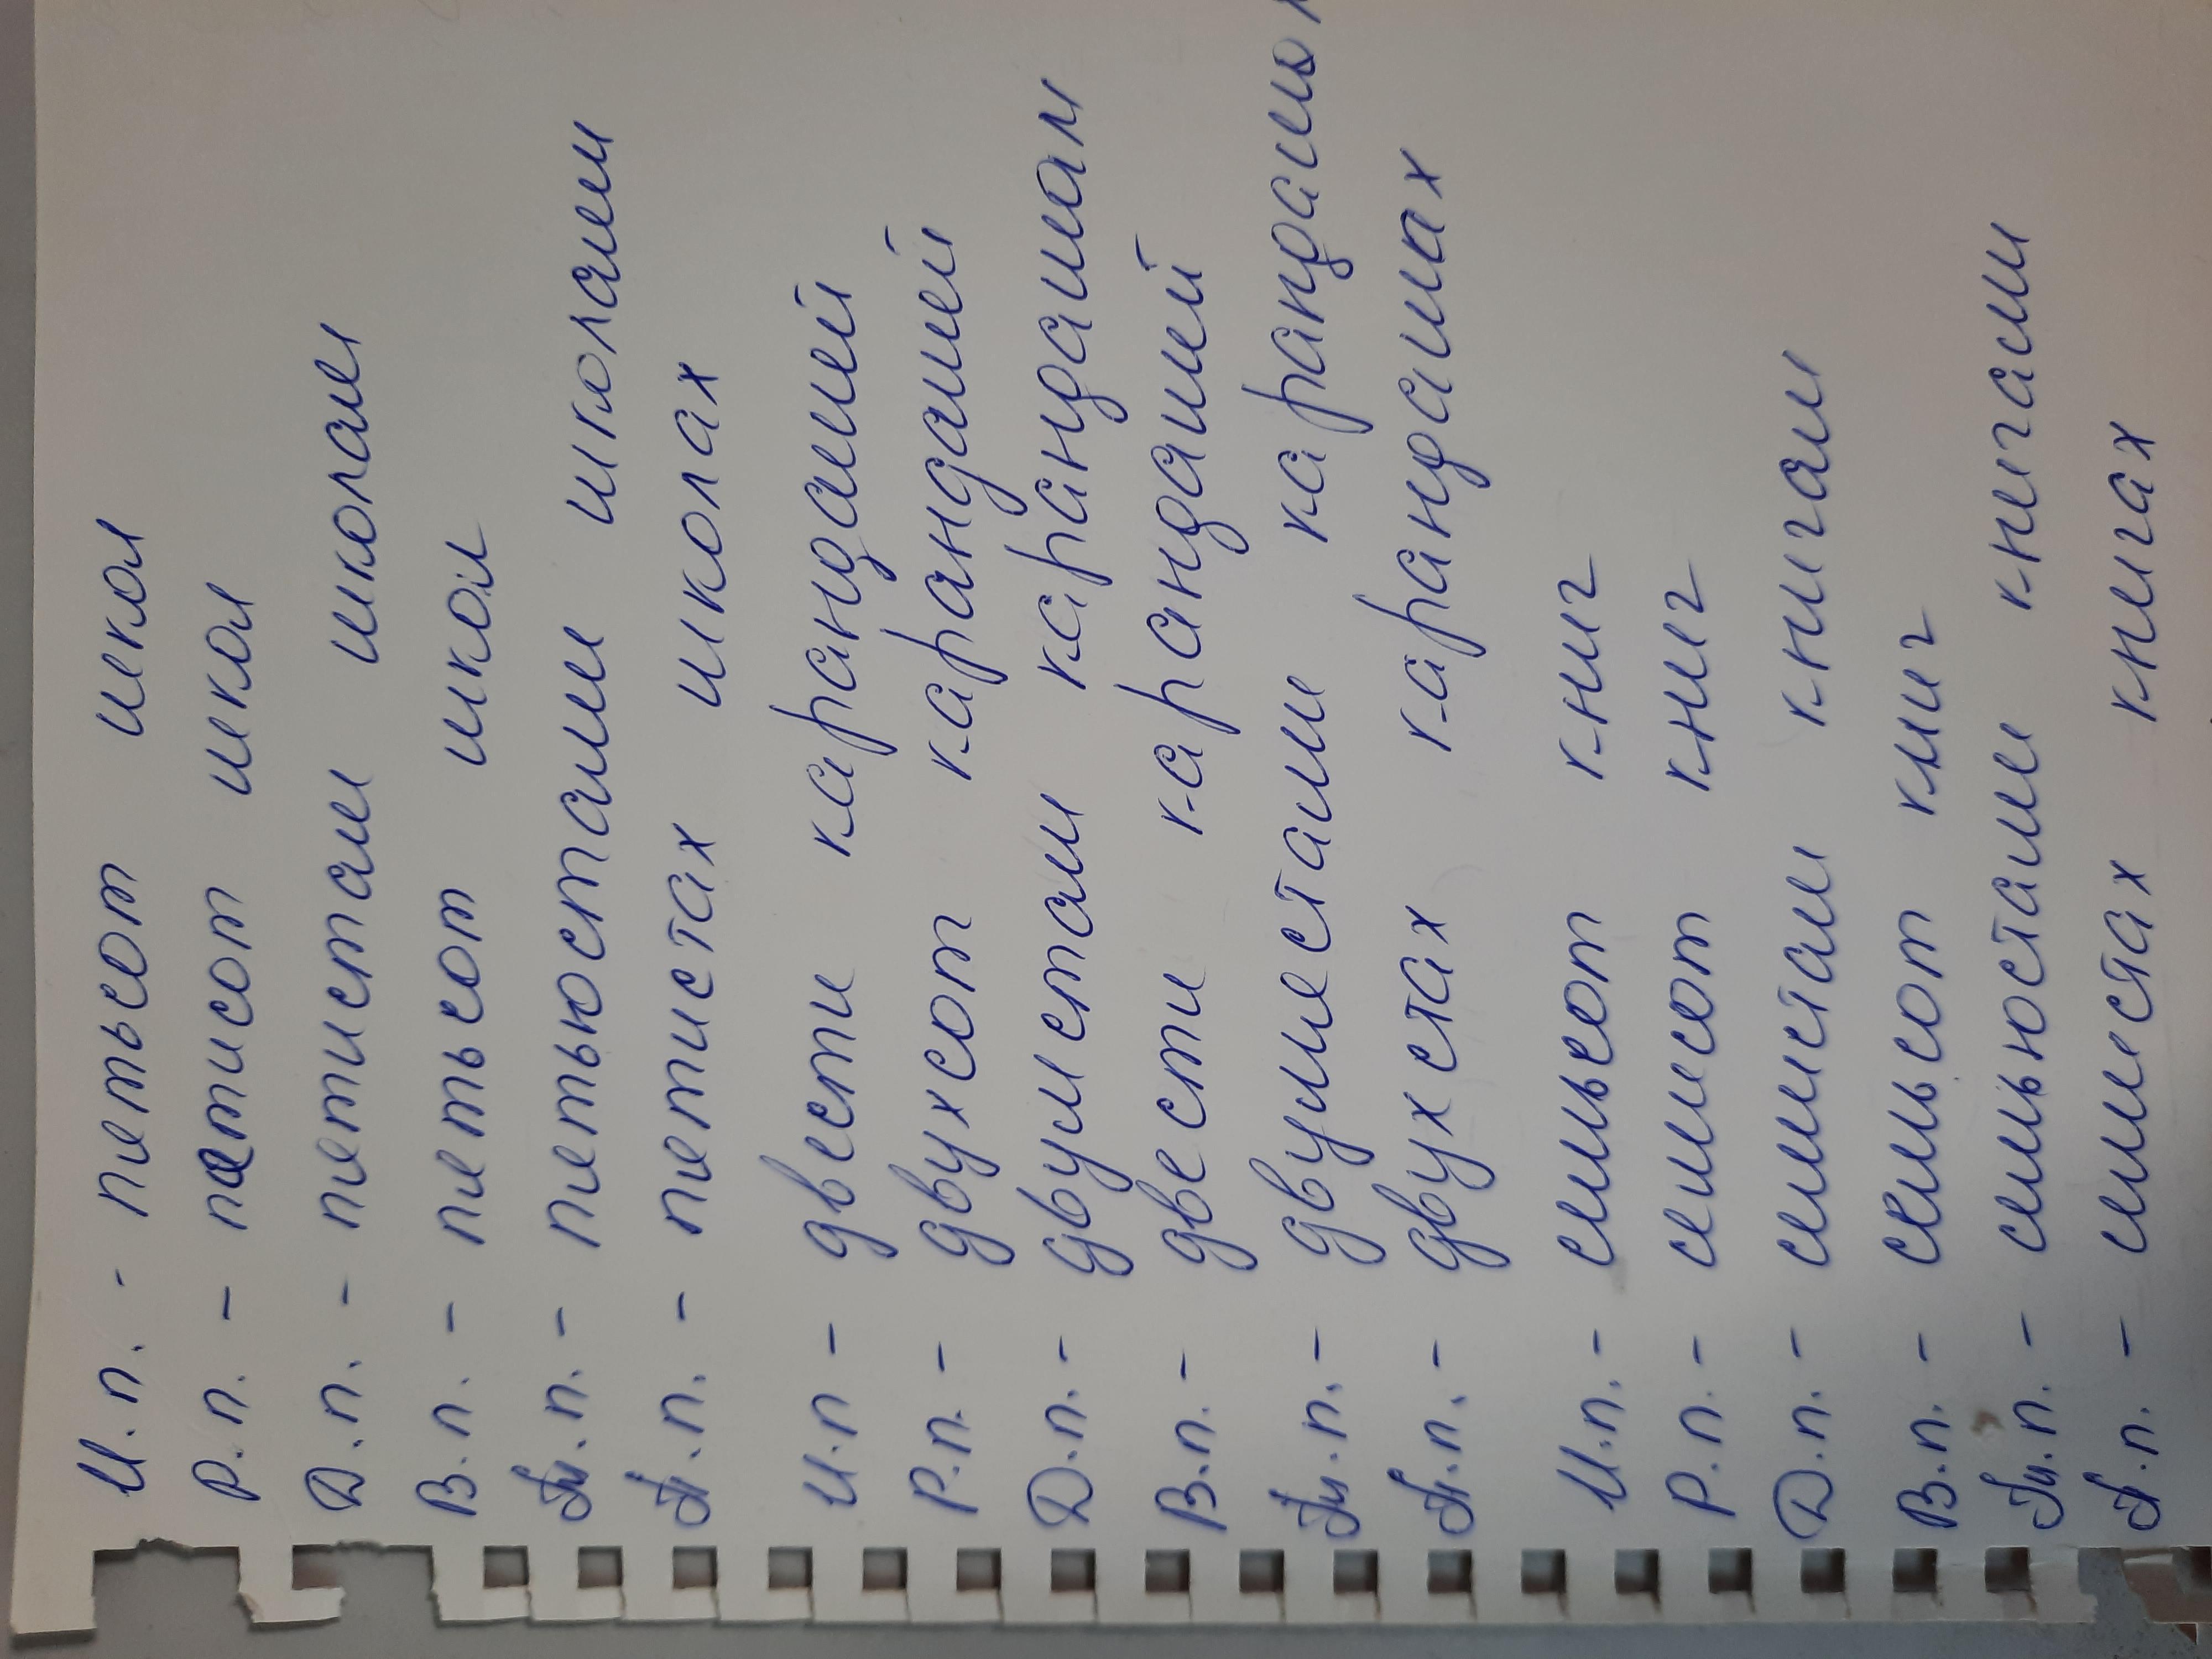 И.п. - пятьсот школ
Р.п. - пятисот школ
Д.п. - пятистам школам
В.п. - пятьсот школ
Тв.п. - пятьюстами школами
П.п. - пятистах школах
И.п - двести карандашей
Р.п. - двухсот карандашей
Д.п. - двумстам карандашам
В.п. - двести карандашей
Тв.п. - двумястами
П.п. - двухстах карандашах
И.п. - семьсот книг
Р.п. - семисот книг
Д.п. - семистам книгам
В.п. - семьсот книг
Тв.п. - семьюстами книгами
П.п. - семистах книгах